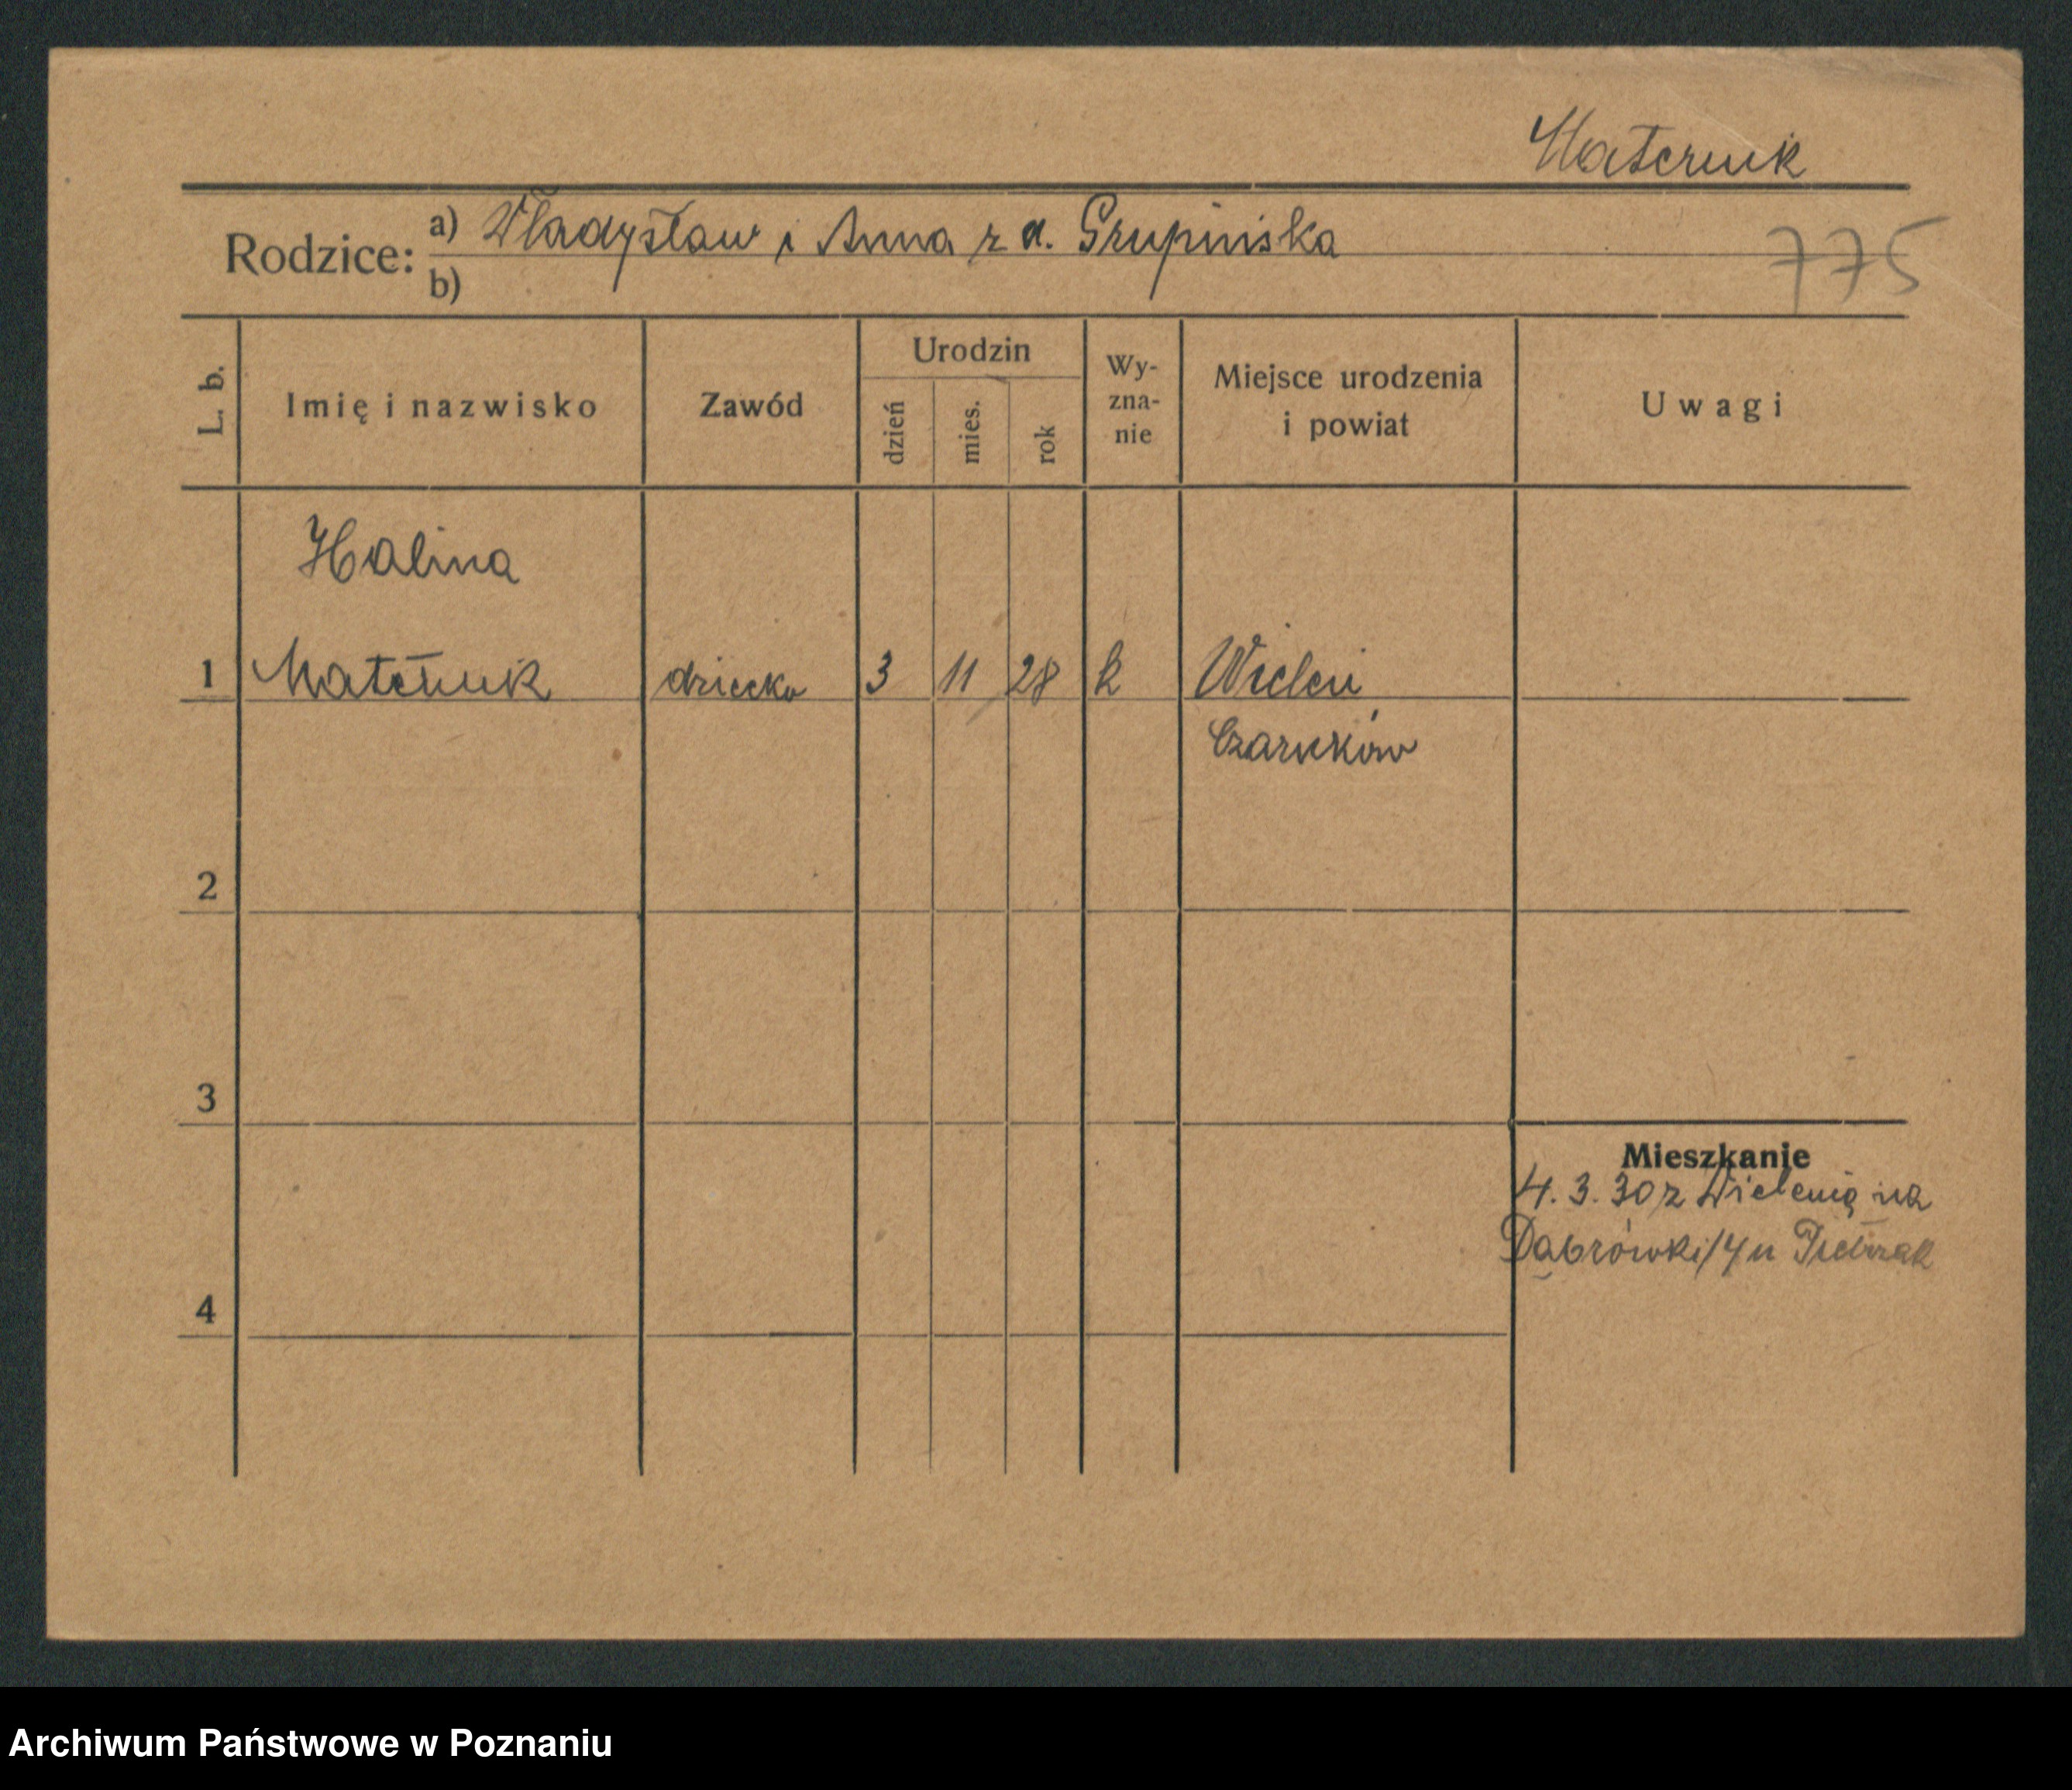 Maternik
Rodzice: a) Władysław i Anna z d. Grupińska
b)
775
L. b.
Imię i nazwisko
Zawód
Urodzin
dzień
mies.
rok
Wy-
zna-
nie
Miejsce urodzenia
i powiat
Uwagi
Halina
1 Maternik dziecko 3 11 28 k Wieleń
Czarnków
2
3
Mieszkanie
4. 3. 30 z Wielenia na
Dąbrówki 14 u
4
Archiwum Państwowe w Poznaniu